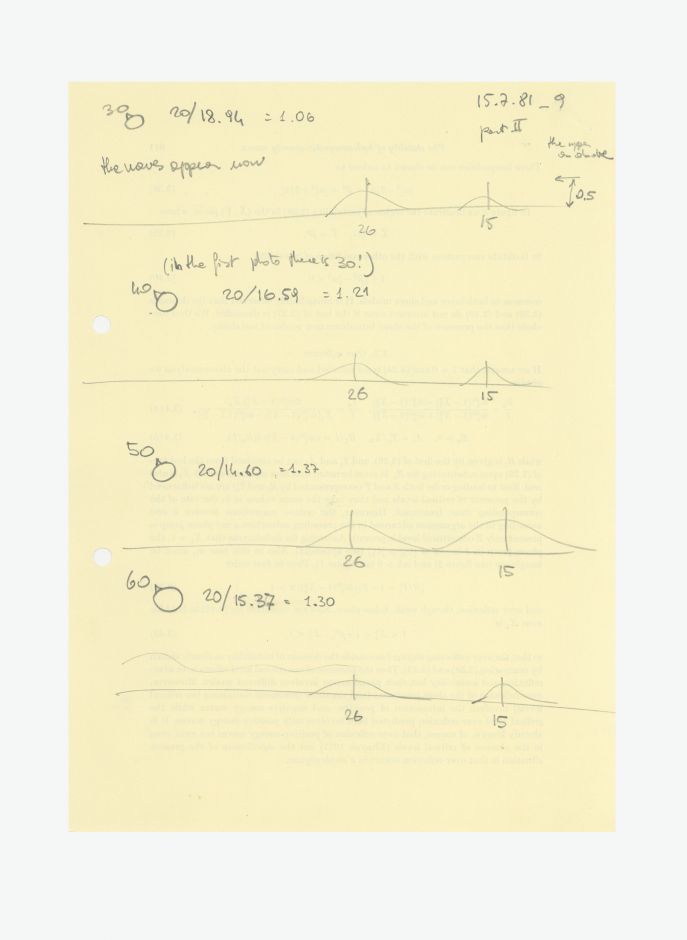 30 20/18.94 = 1.06
15.7.81_9
part II
the waves appear now
the
on above
0.5
26
15
(in the first photo there is 30!)
40 20/16.59 = 1.21
26
15
50 20/14.60 = 1.37
26
15
60 20/15.37 = 1.30
26
15